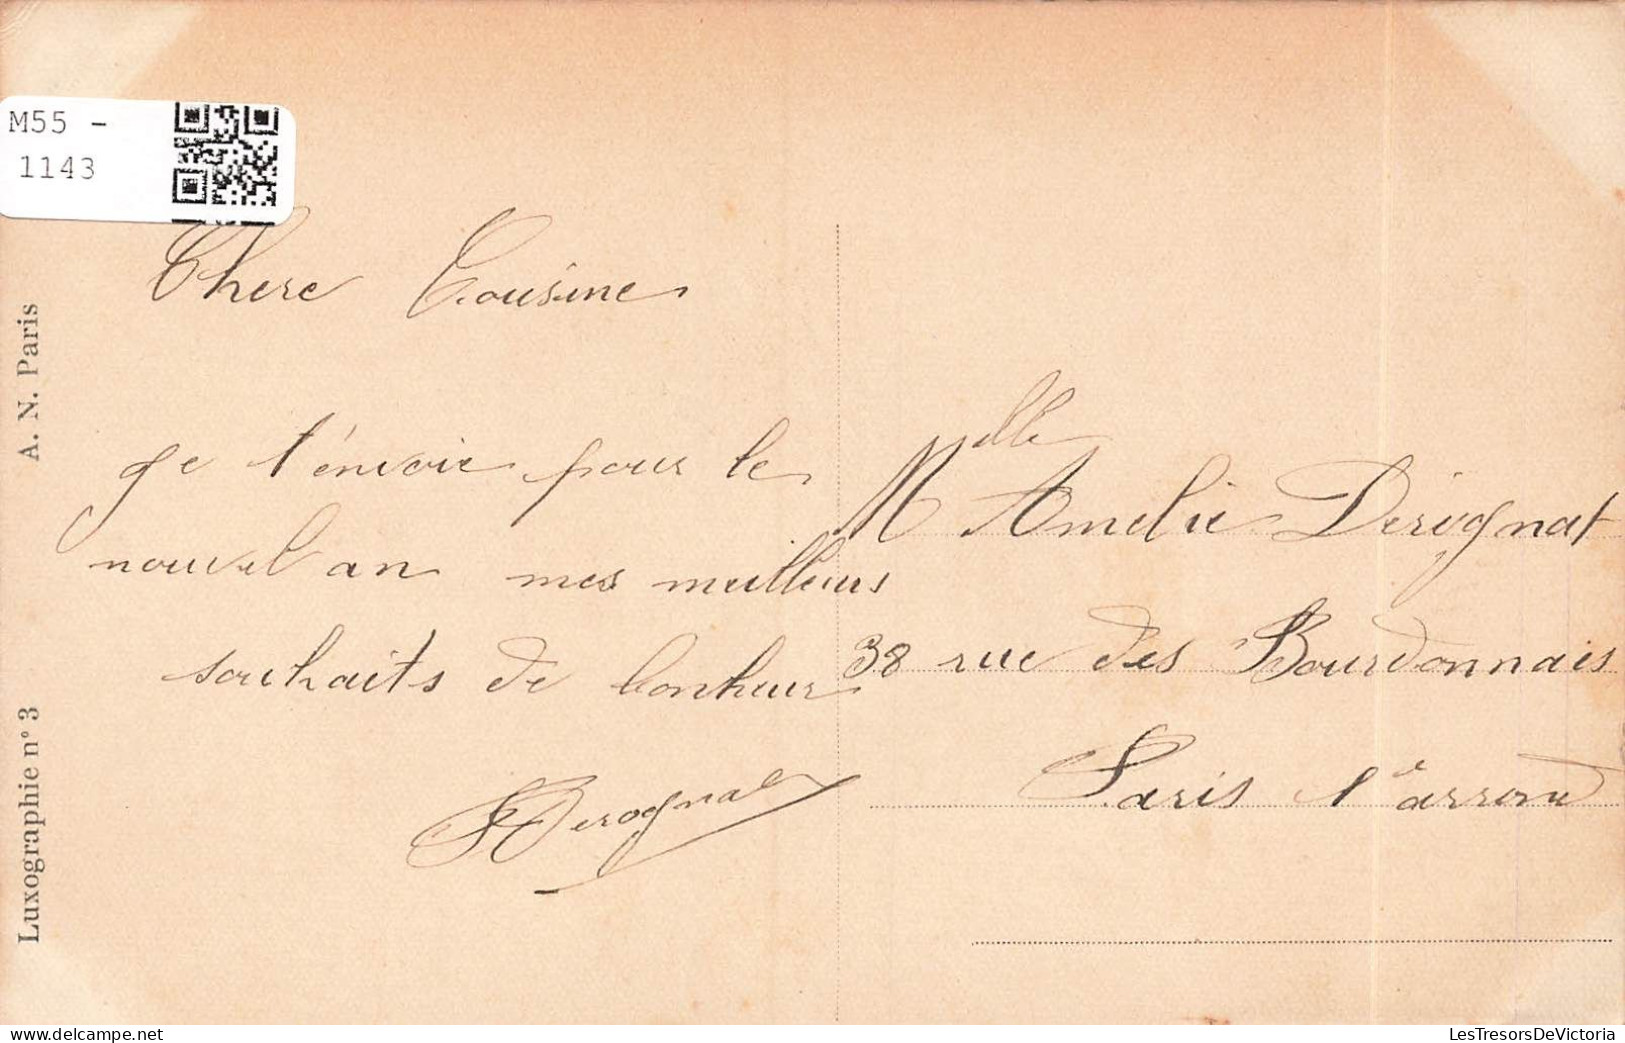 M55 -
1143
A. N. Paris
Luxographie n° 3
Chere Cousine
Je t'envoie pour le
nouvel an mes meilleurs
souhaits de bonheur
Derognat
Melle Amelie Derognat
38 rue des Bourdonnais
Paris 1e arrond
delcampe.net
LesTresorsDeVictoria